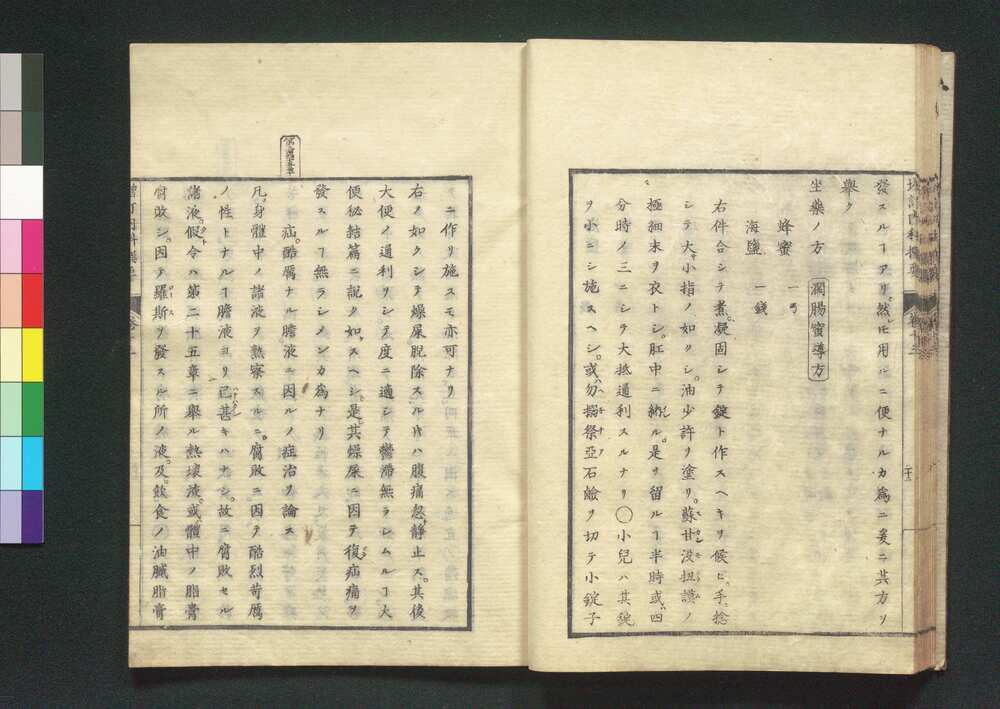 發スルヿアリ然𪜈用ルニ便ナルカ爲ニ爰ニ其方ヲ
舉ク
坐藥ノ方 潤腸蜜導方
蜂蜜
海鹽 一錢
右件合シテ煮凝固シテ錠ト作スヘキヲ候ヒ手捻
シテ大サ小指ノ如クシ油少許ヲ塗リ蘇甘没扭謨ノ
極細末ヲ衣トシ肛中ニ納ル是ヲ留ルヿ半時或四
分時ノ三ニシテ大抵通利スルナリ〇小兒ハ其錠
ヲ小ニシ施スヘシ或勿搦祭亞石鹼ヲ切テ小錠子
ニ作リ施スモ亦可ナリ
右ノ如クシテ燥屎脫除スル𪜈ハ腹痛忽靜止ス其後
大便ノ通利ヲシテ度ニ適シテ鬱滯無ラシムルヿ大
便秘結篇ニ說クカ如スヘシ是其燥屎ニ因テ復疝痛ヲ
發スルヿ無ラシメンカ爲ナリ
疝酷厲ナル膽液ニ因ルノ症治ヲ論ス
凡身體中ノ諸液ヲ熟察スルニ腐敗ニ因テ酷烈苛厲
ノ性トナルヿ膽液ヨリ已甚キハナシ故ニ腐敗セル
諸液假令ハ第二十五章ニ舉ル熱壞液或體中ノ脂膏
腐敗シ因テ羅斯ヲ發スル所ノ液及飲食ノ油膩脂膏